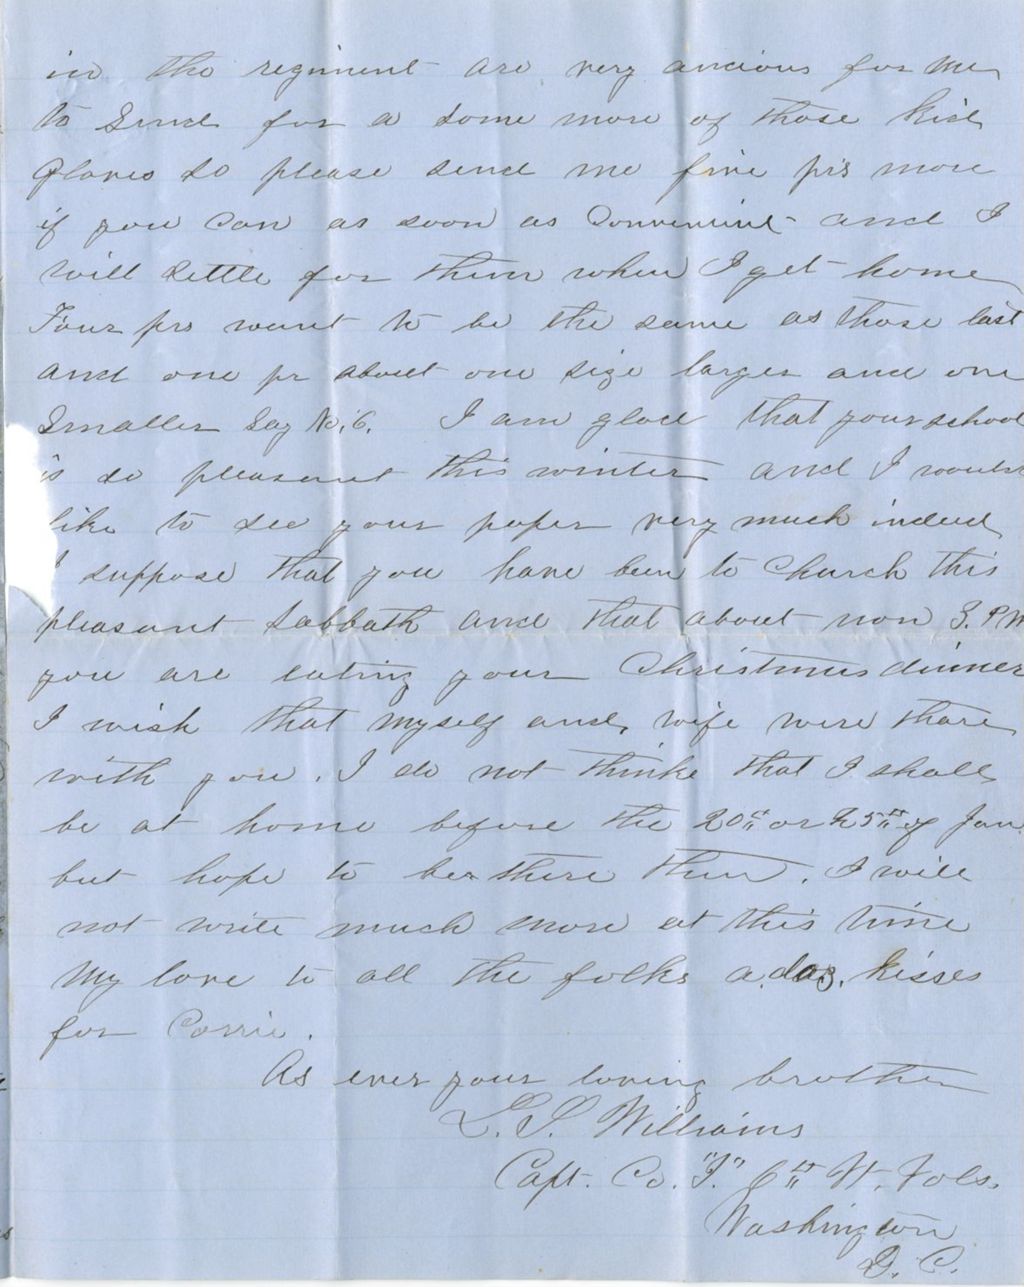 in the regiment are very ancious for me
to Send for a some more of those Kid
Gloves so please send me five prs more
if you Can as soon as Convenient and I
will Settle for them when I get home
Four prs want to be the same as those last
and one pr about one size larger and one
Smaller Say No. 6. I am glad that your school
is so pleasant this winter and I would
like to see your paper very much indeed
I suppose that you have been to Church this
pleasant Sabbath and that about now 3. P M
you are eating your Christmas dinner
I wish that myself and wife were there
with you. I do not thinke that I shall
be at home before the 20th or 25th of Jan.
but hope to be there then. I will
not write much more at this time
My love to all the folks a doz. kisses
for Corrie.
As ever your loving brother
L. S. Williams
Capt. Co. "I" 6th Vt. Vols.
Washington
D. C.